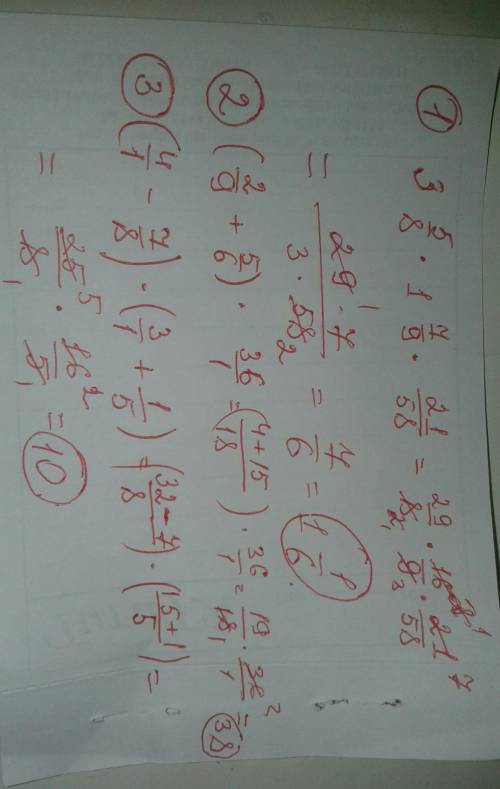 ① 3 5/8 · 1 7/9 · 21/58 = 29/8 · 16/9 · 21/58
= 29 · 7 / 3 · 58 = 7/6 = 1 1/6
② (2/9 + 5/6) · 36/1 = (4+15/18) · 36/1 = 19/18 · 36/1 = 38
③ (4/1 - 7/8) · (3/1 + 1/5) = (32-7/8) · (15+1/5) =
= 25/8 · 16/5 = 10